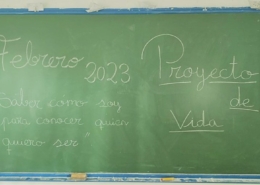 Febrero 2023
Saber como soy
para conocer quien
quiero ser"
Proyecto
de
Vida